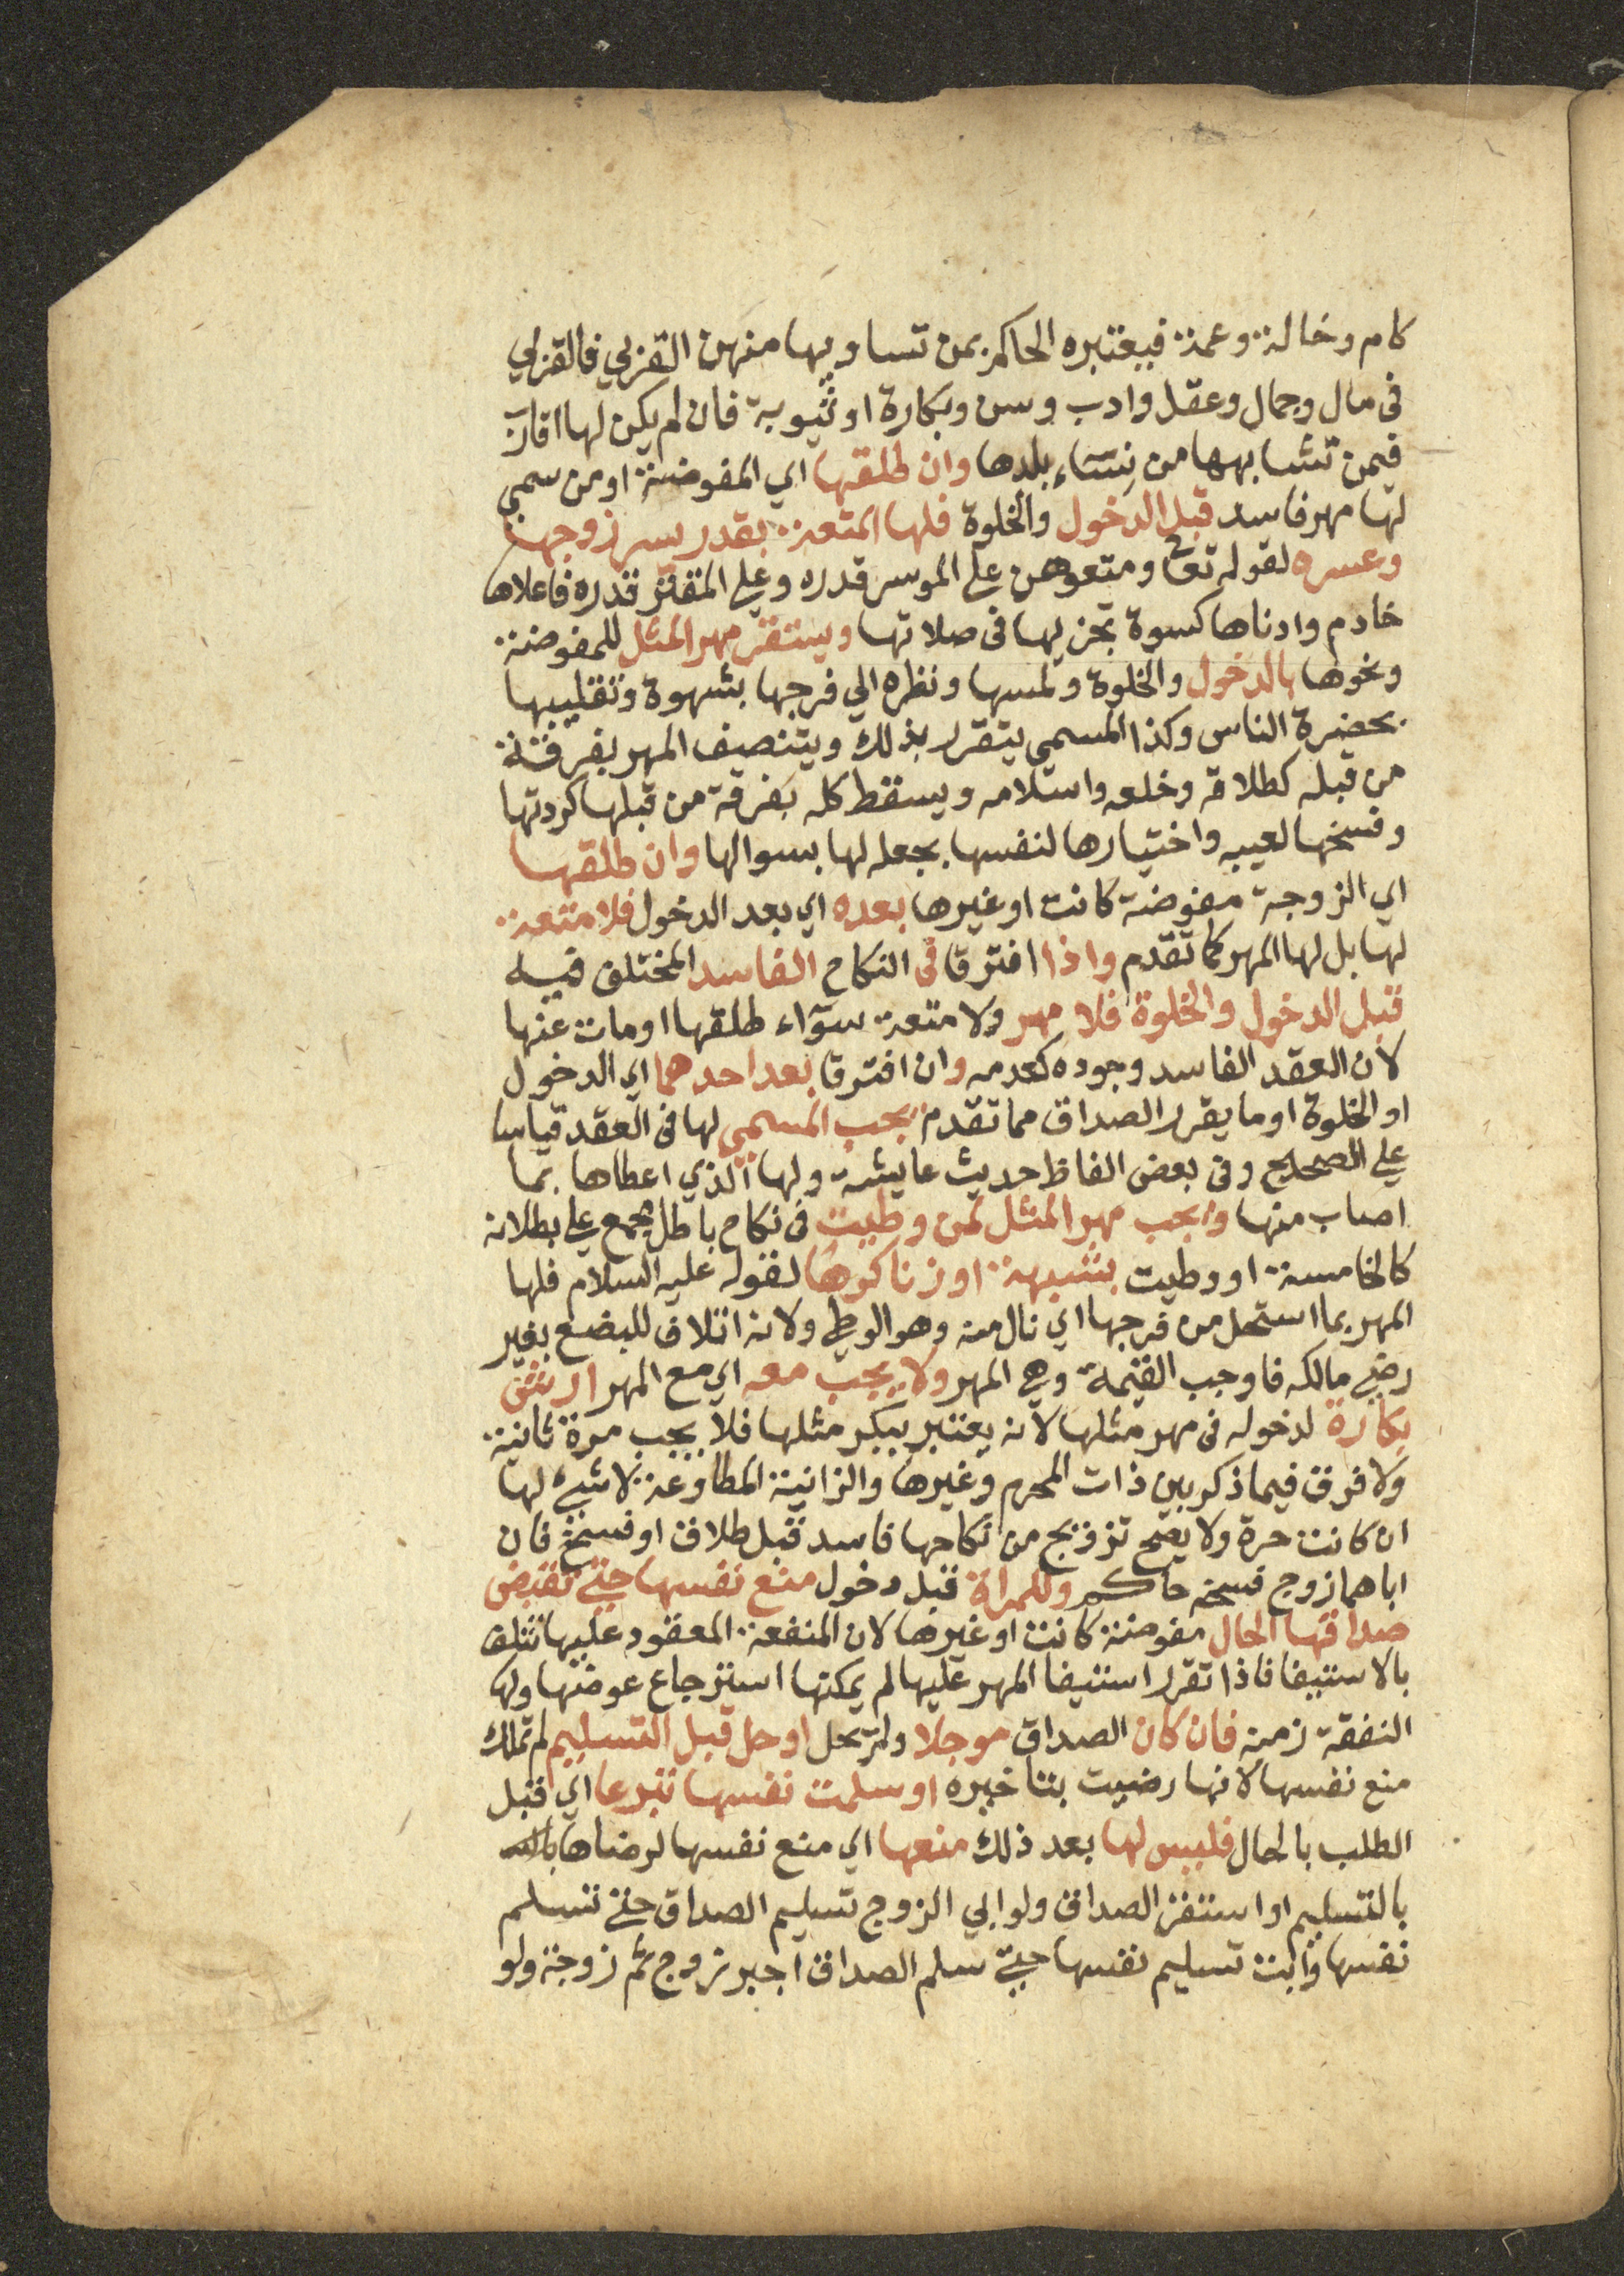 كام وخالة وعمة فيعتبره الحاكم بمن تساويها منهن القربي فالقربي
في مال وجمال وعقل وادب وسن وبكارة او ثيوبة فان لم يكن لها اقارب
فبمن تشابهها من نساء بلدها وان طلقها اي المفوضة او من سمي
لها مهر فاسد قبل الدخول والخلوة فلها المتعة بقدر يسر زوجها
وعسره لقوله تعا ومتعوهن على الموسر قدره وعلى المقتر قدره فاعلاها
خادم وادناها كسوة تجزيها في صلاتها ويستقر مهر المثل للمفوضة
ونحوها بالدخول والخلوة ولمسها ونظره الي فرجها بشهوة وتقبيلها
بحضرة الناس وكذا المسمي يتقرر بذلك ويتنصف المهر بفرقة
من قبله كطلاقه وخلعه واسلامه ويسقط كله بفرقة من قبلها كردتها
وفسخها لعيبه واختيارها لنفسها بجعله لها بسوالها وان طلقها
اي الزوجة مفوضة كانت او غيرها بعده اي بعد الدخول فلا متعة
لها بل لها المهر كما تقدم واذا افترقا في النكاح الفاسد المختلف فيه
قبل الدخول والخلوة فلا مهر ولا متعة سوآء طلقها او مات عنها
لان العقد الفاسد وجوده كعدمه وان افترقا بعد احدهما اي الدخول
او الخلوة او ما يقرر الصداق مما تقدم يجب المسمي لها في العقد قياسا
على الصحيح وفي بعض الفاظ حديث عايشة ولها الذي اعطاها بما
اصاب منها ويجب مهر المثل لمن وطيت في نكاح باطل مجمع على بطلانه
كالخامسة او وطيت بشبهة او زنا كرها لقوله عليه السلام فلها
المهر بما استحل من فرجها اي نال منه وهو الوطي ولانه اتلاف للبضع بغير
رضي مالكه فاوجب القيمة وهي المهر ولا يجب معه اي مع المهر ارش
بكارة لدخوله في مهر مثلها لانه يعتبر ببكر مثلها فلا يجب مرة ثانية
ولا فرق فيما ذكر بين ذات المحرم وغيرها والزانية المطاوعة لا شيء لها
ان كانت حرة ولا يصح تزويج من نكاحها فاسد قبل طلاق او فسخ فان
اباهما زوج فسخه حاكم وللمراة قبل دخول منع نفسها حتي تقبض
صداقها الحال مفوضة كانت او غيرها لان المنفعة المعقود عليها تتلف
بالاستيفا فاذا تقرر استيفا المهر عليها لم يمكنها استرجاع عوضها ولها
النفقة زمنه فان كان الصداق موجلا ولم يحل او حل قبل التسليم لم تملك
منع نفسها لانها رضيت بتاخيره او سلمت نفسها تبرعا اي قبل
الطلب بالحال فليس لها بعد ذلك منعها اي منع نفسها لرضاها
بالتسليم او استقر الصداق ولو ابي الزوج تسليم الصداق حتي تسلم
نفسها وابت تسليم نفسها حتي سلم الصداق اجبر زوج ثم زوجة ولو